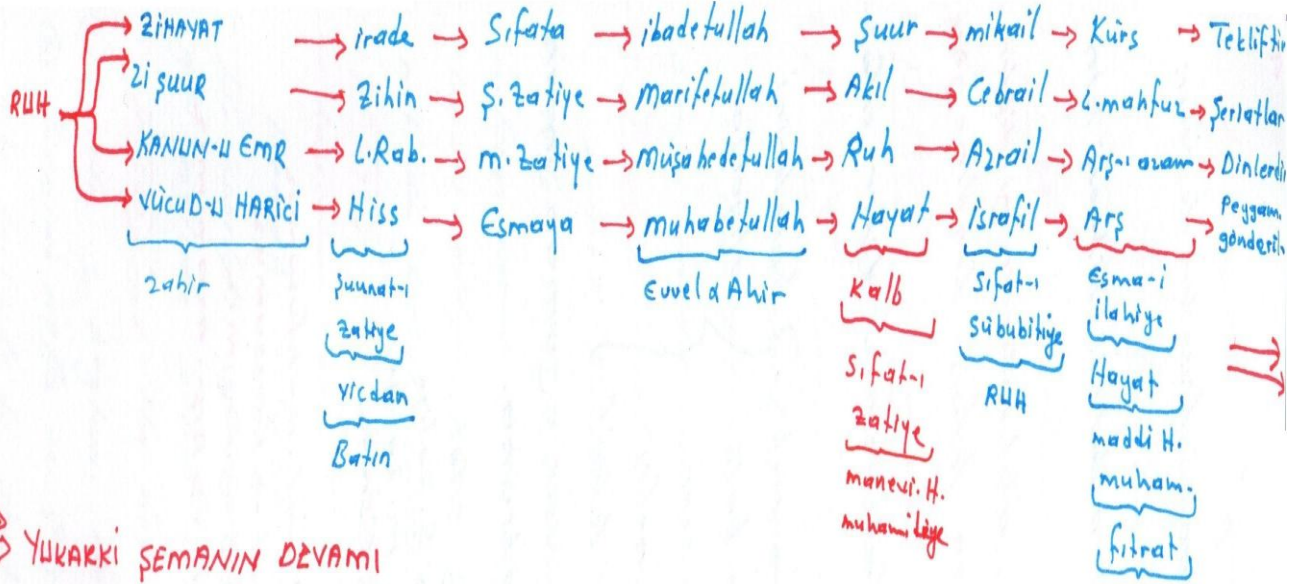 ZİHAYAT → irade → Sıfata → ibadetullah → Şuur → mikail → Kürs → Teklifti
RUH
Zi şuur → Zihin → Ş. Zatiye → Marifetullah → Akıl → Cebrail → L. mahfuz → Şeriatlar
KANUN-U EMR → L. Rab. → m. Zatiye → Müşahedetullah → Ruh → Azrail → Arş-ı azam → Dinlerdi
VÜCUD-U HARİCİ → Hiss → Esmaya → muhabetullah → Hayat → israfil → Arş → Peygam. gönderil
zahir
Şuunat-ı
zatiye
vicdan
Batın
Evvel & Ahir
Kalb
Sıfat-ı
zatiye
manevi. H.
Sıfat-ı
sübubitiye
RUH
Esma-i
ilahiye
Hayat
maddi H.
muham.
fıtrat
YUKARKİ ŞEMANIN DEVAMI